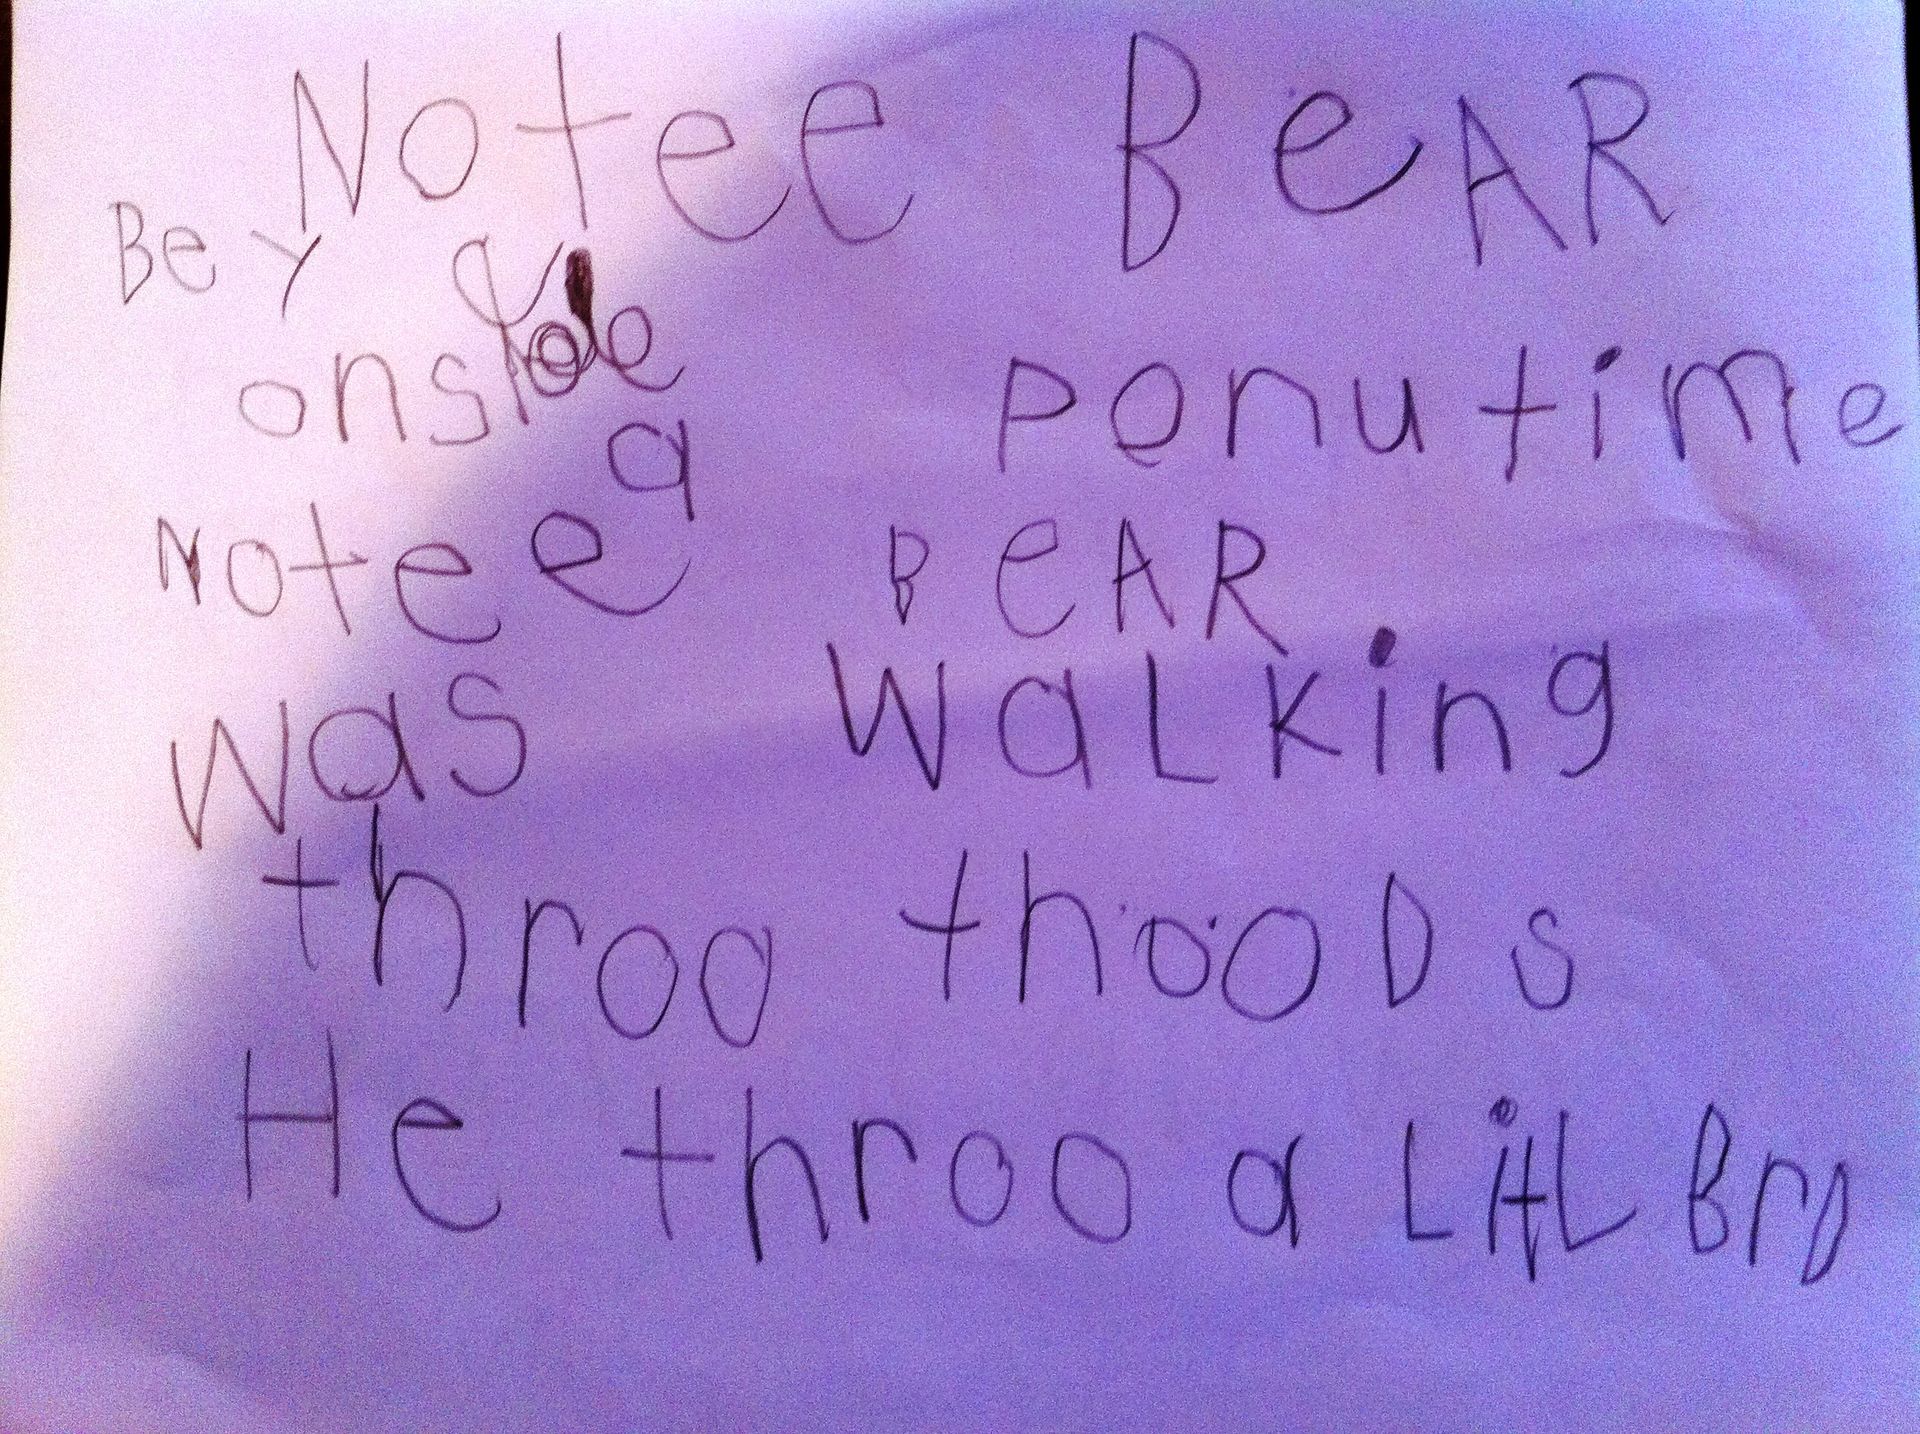 Notee BeAR
Bey
ons a ponutime
Notee BeAR
was waLking
throo thooDs
He throo a LitL BrD